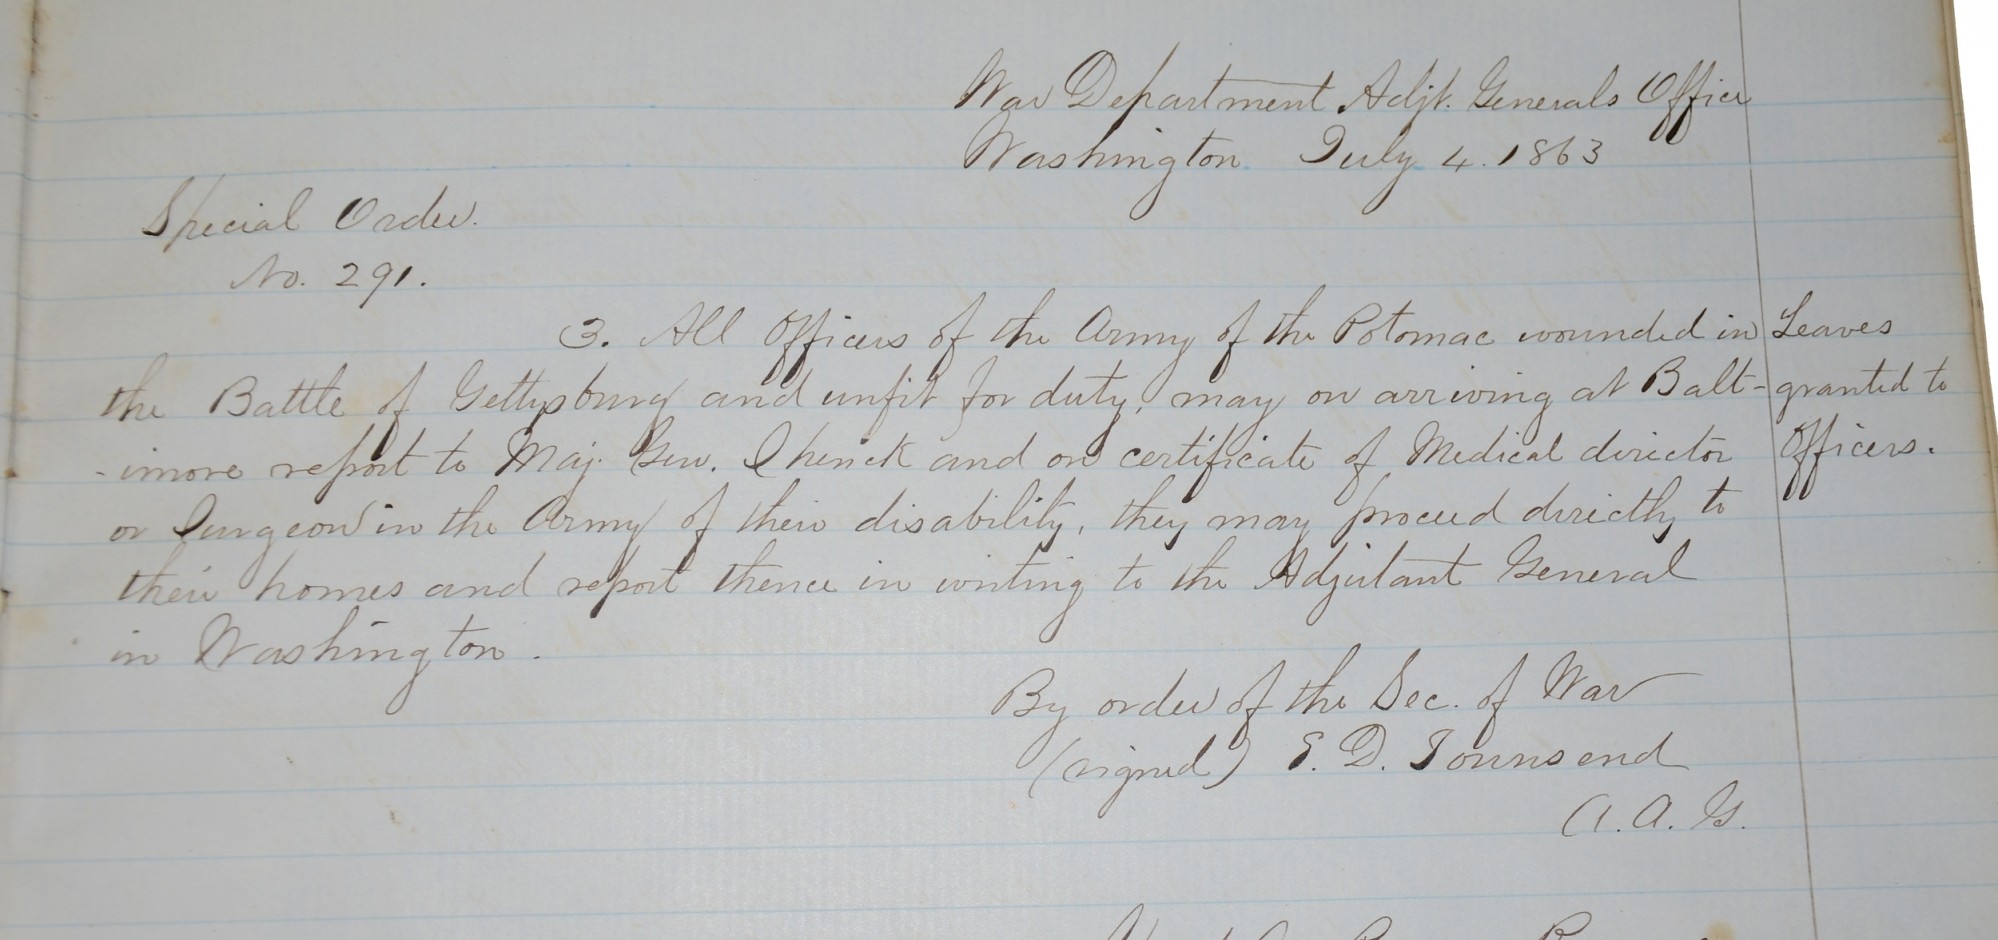 War Department Adjt. Generals Office
Washington July 4. 1863
Special Order.
No. 291.
3. All Officers of the Army of the Potomac wounded in
the Battle of Gettysburg and unfit for duty, may on arriving at Balt-
-imore report to Maj. Gen. Shenck and on certificate of Medical director
or Surgeon in the Army of their disability, they may proceed directly to
their homes and report thence in writing to the Adjutant General
in Washington.
Leaves
granted to
Officers.
By order of the Sec. of War
(signed) E. D. Townsend
A. A. G.